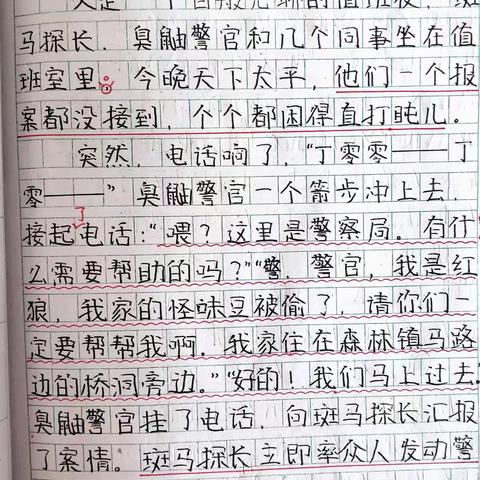 一个百般无聊的值班夜，斑
马探长、臭鼬警官和几个同事坐在值
班室里。今晚天下太平，他们一个报
案都没接到，个个都困得直打盹儿。
突然，电话响了，“丁零零——丁
零——”臭鼬警官一个箭步冲上去，
接起了电话：“喂？这里是警察局。有什
么需要帮助的吗？”“警、警官，我是红
狼，我家的怪味豆被偷了，请你们一
定要帮帮我啊，我家住在森林镇马路
边的桥洞旁边。”“好的！我们马上过去。”
臭鼬警官挂了电话，向斑马探长汇报
了案情。斑马探长立即率众人发动警